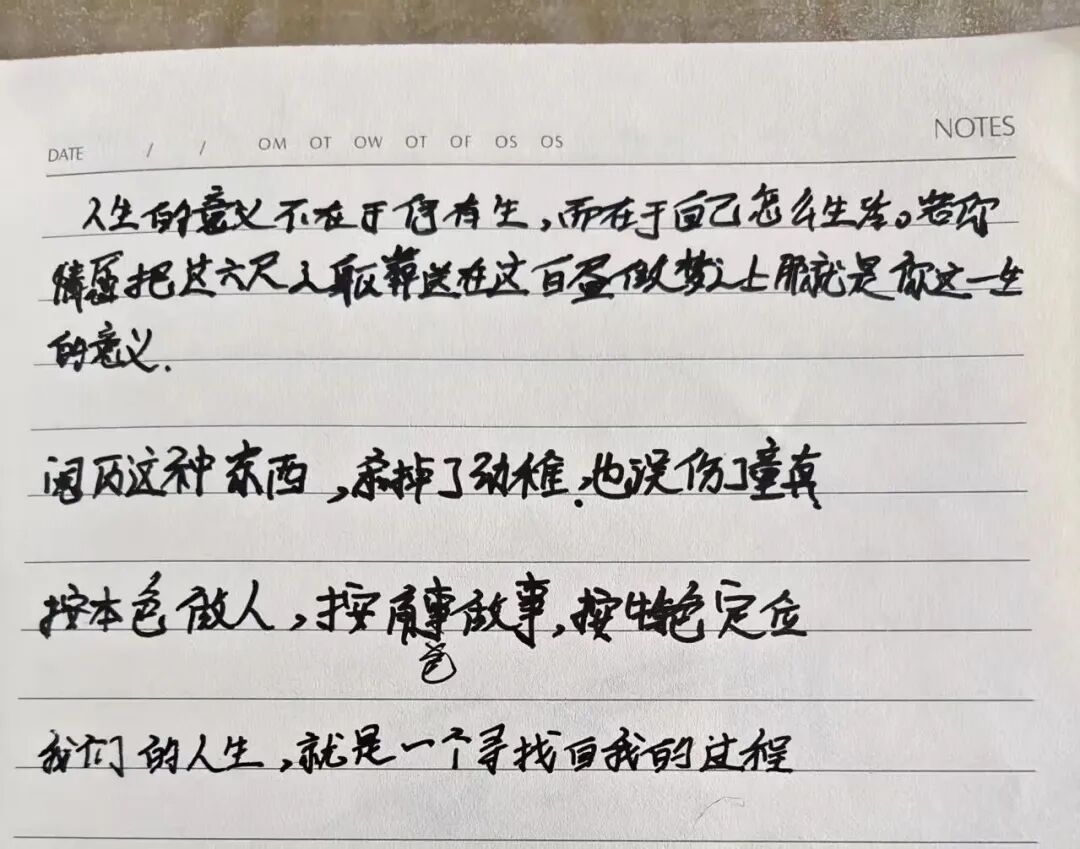 NOTES
DATE / / OM OT OW OT OF OS OS
人生的意义不在于何有生,而在于自己怎么生活。若你
情愿把这六尺之躯葬送在这百昼做梦之上那就是你这一生
的意义.
阅历这种东西,杀掉了幼稚.也误伤了童真
按本色做人,按角事做事,按特色定位
色
我们的人生,就是一个寻找自我的过程